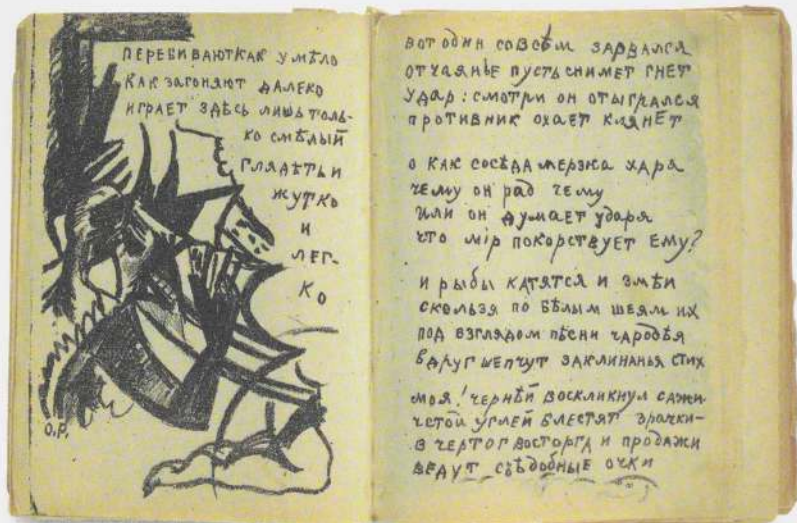 ПЕРЕБИВАЮТ КАК УМѢЛО
КАК ЗАГОНЯЮТ ДАЛЕКО
ИГРАЕТ ЗДѢСЬ ЛИШЬ ТОЛЬ-
КО СМѢЛЫЙ
ГЛЯДѢТЬ И
ЖУТКО
И
ЛЕГ-
КО
О.Р.
ВОТ ОДИН СОВСѢМ ЗАРВАЛСЯ
ОТЧАЯНЬЕ ПУСТЬ СНИМЕТ ГНЕТ
УДАР: СМОТРИ ОН ОТЫГРАЛСЯ
ПРОТИВНИК ОХАЕТ КЛЯНЕТ
О КАК СОСѢДА МЕРЗКА ХАРЯ
ЧЕМУ ОН РАД ЧЕМУ
ИЛИ ОН ДУМАЕТ УДАРЯ
ЧТО МІР ПОКОРСТВУЕТ ЕМУ?
И РЫБЫ КАТЯТСЯ И ЗМѢИ
СКОЛЬЗЯ ПО БѢЛЫМ ШЕЯМ ИХ
ПОД ВЗГЛЯДОМ ПѢСНИ ЧАРОДѢЯ
ВДРУГ ШЕПЧУТ ЗАКЛИНАНЬЯ СТИХ
МОЯ! ЧЕРНѢЙ ВОСКЛИКНУЛ САЖИ
ЧСТОЙ УГЛЕЙ БЛЕСТЯТ ЗРАЧКИ-
В ЧЕРТОГ ВОСТОРГА И ПРОДАЖИ
ВЕДУТ СЪѢДОБНЫЕ ОЧКИ